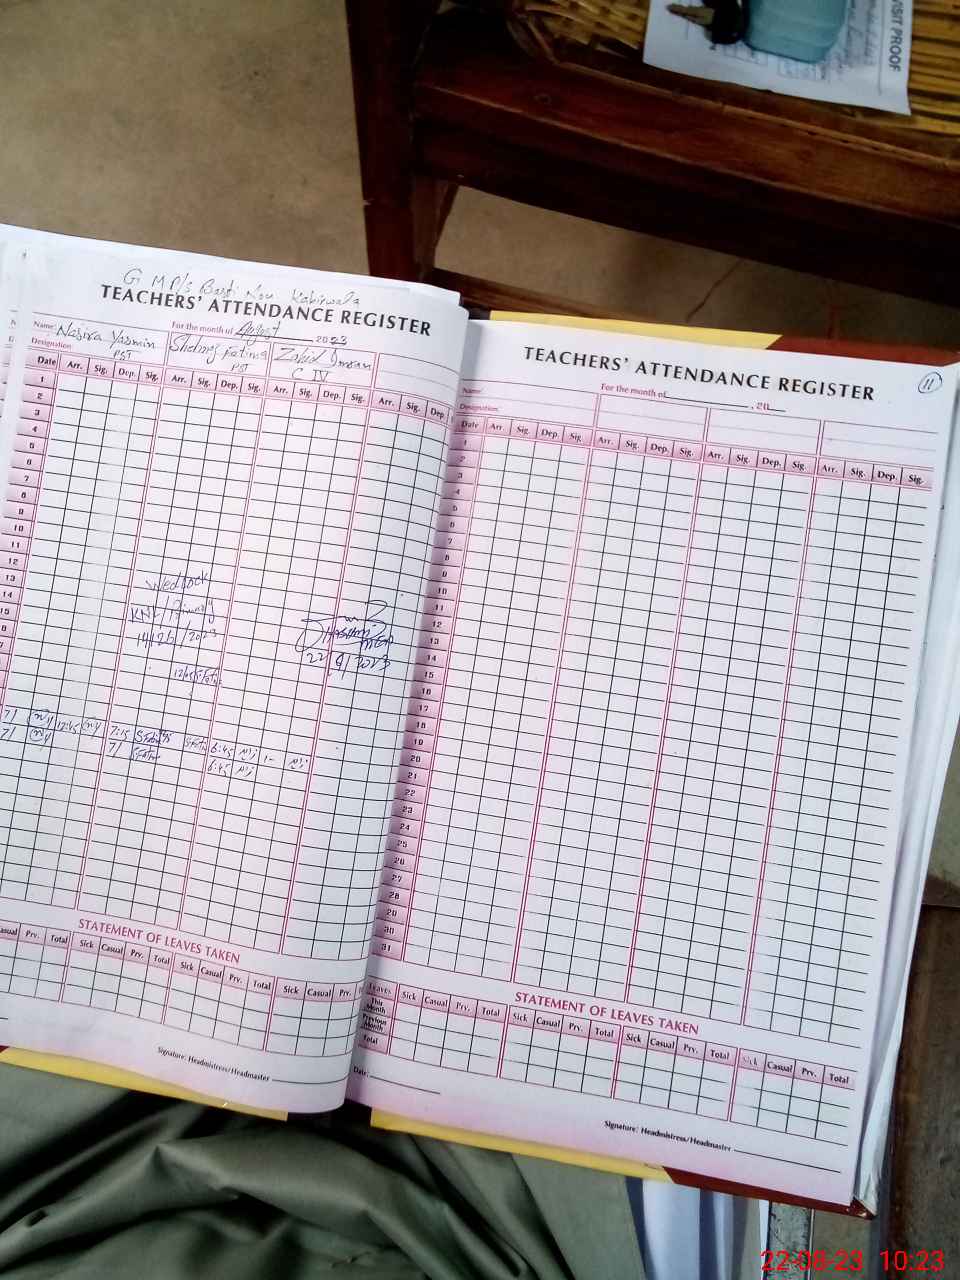 VISIT PROOF
G M P/S Basti Nou Kabirwala
TEACHERS' ATTENDANCE REGISTER
Name: Nasira Yasmin
For the month of August 2023
Designation: PST
Fatima
PST
Zahid Imran
C IV
Date Arr. Sig. Dep. Sig. Arr. Sig. Dep. Sig. Arr. Sig. Dep. Sig. Arr. Sig. Dep.
1
2
3
4
5
6
7
8
9
10
11
12
13
14
15
KNL/Primary
22/8/2023
7/ 12:45 7:15 6:45 1-
7/ 7/ 6:45
STATEMENT OF LEAVES TAKEN
Casual Prv. Total Sick Casual Prv. Total Sick Casual Prv. Total Sick Casual Prv.
Signature: Headmistress/Headmaster
TEACHERS' ATTENDANCE REGISTER
11
Name:
For the month of , 20
Designation:
Date Arr Sig. Dep. Sig. Arr. Sig. Dep. Sig. Arr. Sig. Dep. Sig. Arr. Sig. Dep. Sig.
1
2
3
4
5
6
7
8
9
10
11
12
13
14
15
16
17
18
19
20
21
22
23
24
25
26
27
28
29
30
31
STATEMENT OF LEAVES TAKEN
Leaves Sick Casual Prv. Total Sick Casual Prv. Total Sick Casual Prv. Total Sick Casual Prv. Total
This Month
Previous Month
Total
Date:
Signature: Headmistress/Headmaster
22-08-23 10:23